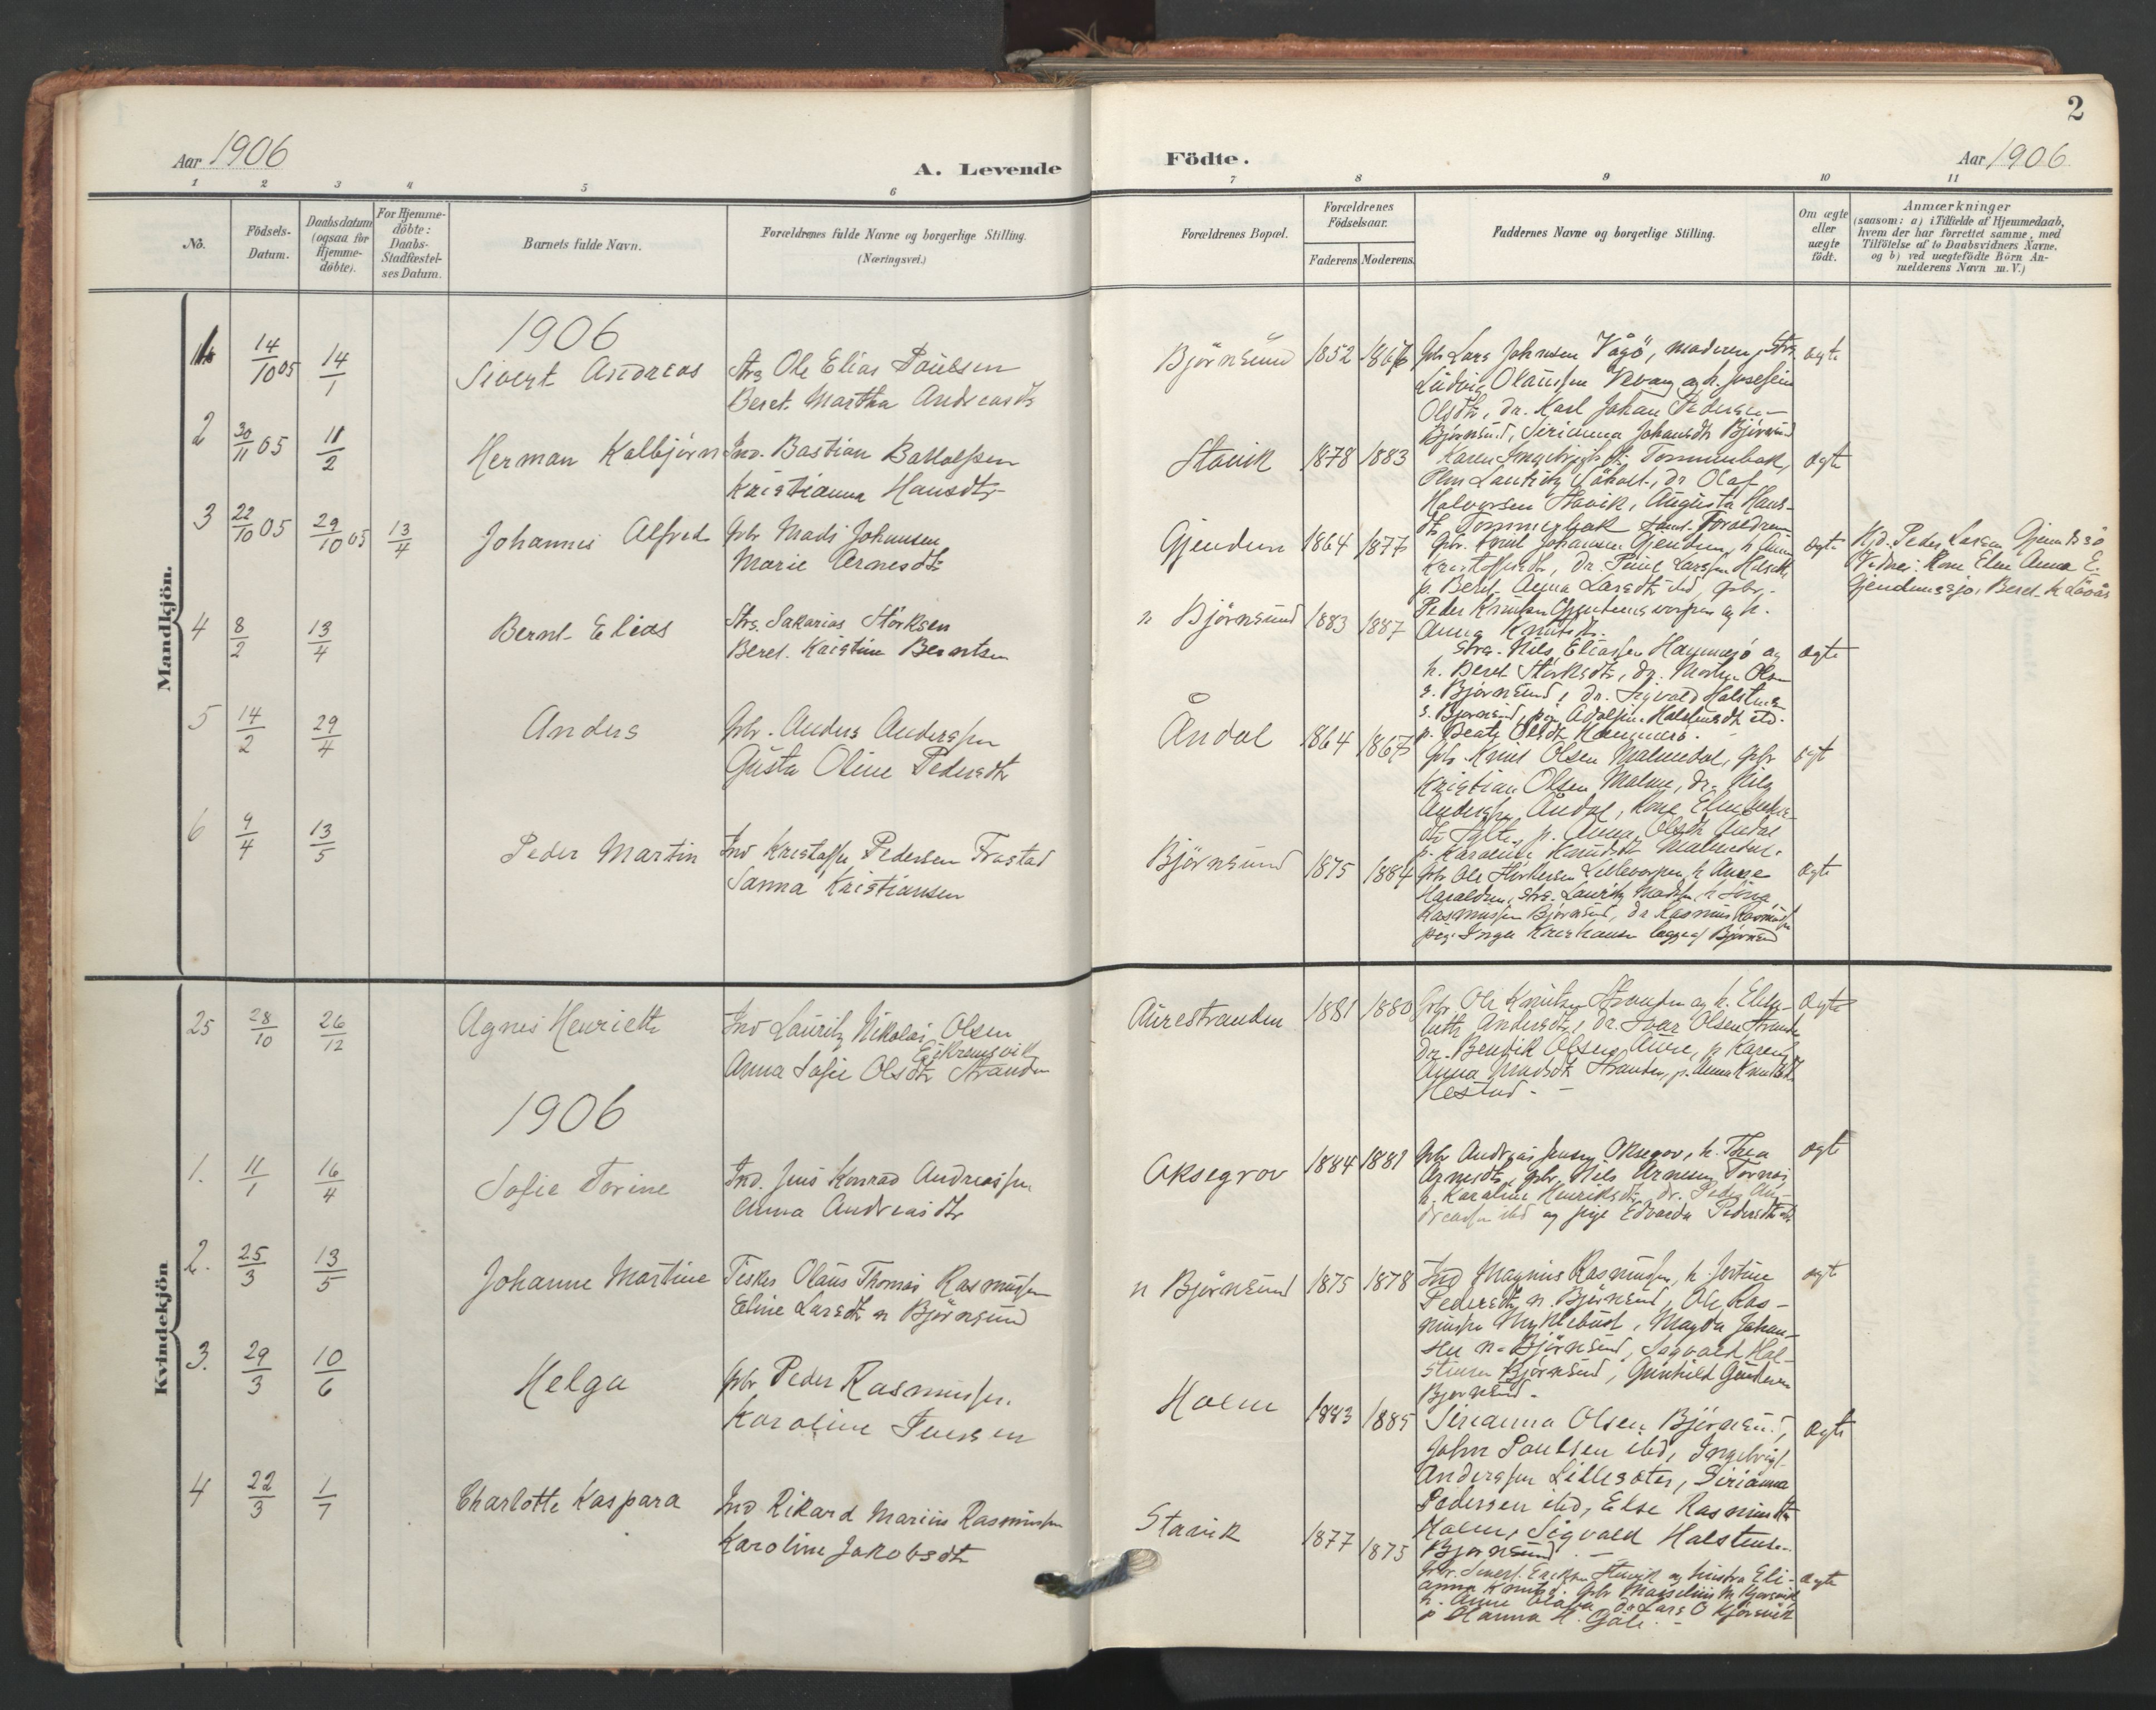 2
Aar 1906
A. Levende
Födte.
Aar 1906
1 2 3 4 5 6 7 8 9 10 11
No.
Födsels-
Datum.
Daabsdatum
(ogsaa for
Hjemme-
döbte).
For Hjemme-
döbte:
Daabs-
Stadfæstel-
ses Datum.
Barnets fulde Navn.
Forældrenes fulde Navne og borgerlige Stilling.
(Næringsvei.)
Forældrenes Bopæl.
Forældrenes
Födselsaar.
Faderens
Moderens
Faddernes Navne og borgerlige Stilling.
Om ægte
eller
uægte
födt.
Anmærkninger
(saasom: a) i Tilfælde af Hjemmedaab,
hvem der har forrettet samme, med
Tilföielse af to Daabsvidners Navne.
og b) ved uægtefödte Börn An-
melderens Navn m. V.)
Mandkjön.
1906
1 14/10 05 14/1 Sivert Andreas
Strs Ole Elias Paulsen
Beret Martha Andreasdtr
Björnsund 1852 1866
Gbr Lars Johnsen Vågö, moderen, Strs
Ludvig Olaussen Vevang og h. Josefine
Olsdtr, dr. Karl Johan Pedersen
Björnsund, Sirianna Johansdtr Björnsund
ægte
2 30/11 05 11/2 Herman Kolbjørn
Ind. Bastian
Kristianna Hansdtr
Stavik 1878 1883
Karen Ingebrigtsdtr Tommenbak,
dr Olaf
Halvorsen Stavik, Augusta Hans-
dtr Tommenbak samt Forældrene
ægte
3 22/10 05 29/10 05 13/4 Johannes Alfred
Gbr Mads Johansen
Marie Arnesdtr
Gjendem 1864 1877
Gbr. Johansen Gjendem, h Anna
Kristoffersdtr, dr. Larssen
p. Beret Anna Larsdtr ibd, Gbr.
Peder Knutsen og h.
Anna Knutsdtr.
ægte
Hjd. Peder Larsen Gjendemsjö
Vidner: Kone Eline Anna E.
Gjendemssjö, Beret
4 8/2 13/4 Bernt Elias
Strs. Sakarias Störksen
Beret Kristine Berntsen
n Björnsund 1883 1887
Strs. Nils Eliassen Hammerö og
h. Beret Störksdtr, dr. Morten Olsen
s. Björnsund, dr. Sigvald Halstensen
s. Björnsund, pige Adolfine Halstensdtr ibd.
p. Beate Olsdtr Hammerö.
ægte
5 14/2 29/4 Anders
Gbr. Anders Anderssen
Gusta Oline Pedersdtr
Åndal 1864 1867
Gbr Knut Olsen Malmedal, Gbr
Kristian Olsen Malme, dr. Nils
Anderssen Åndal, Kone Elen
p. Anna Olsdtr Åndal
p. Karoline Knudsdtr Malmedal.
ægt
6 9/4 13/5 Peder Martin
Ind Kristoffer Pedersen Frostad
Sanna Kristiansen
Björnsund 1875 1884
Gbr Ole Lillevarpen, h Anne
Haraldsen, Strs. Lauritz Madsen, h Lina
Rasmussen Björnsund, dr Rasmus Rasmussen
pige Inga Kristiansen begge af Björnsund
ægte
Kvindekjön
25 28/10 26/12 Agnes Henriette
Ind Lauritz Nikolai Olsen
Ejskremsvik
Anna Sofie Olsdtr Stranden
Aurestranden 1881 1880
Gbr. Ole Knutsen Stranden og h. Elisa-
beth Andersdtr, dr. Ivar Olsen Stranden
dr. Bendik Olsen Aure, p Karen
Anna Madsdtr Stranden, p. Anna Knutsdtr
Hestad.
ægte
1906
1. 11/1 16/4 Sofie Torine
Ind. Jens Konrad Andreassen
Anna Andreasdtr
Aksegrov 1884 1881
Gbr Andreas Jensen Aksegrov, h. Thea
Arnesdtr, gbr. Nils Arnesen Tornes
h. Karoline Henriksdtr, dr. Peder An-
dreassen ibd og pige Edvarda Pedersdtr ibd
ægt
2. 25/3 13/5 Johanne Martine
Fisker Olaus Thomas Rasmussen
Eline Larsdtr n Björnsund
n Björnsund 1875 1878
Ind Magnus Rasmussen, h Jertine
Pedersdtr n. Björnsund, Ole Ras-
mussen Myklebust, Magda Johan-
sen n. Björnsund, Sigvald Hal-
stensen Björnsund, Gunhild Gundersen
Björnsund.
ægt
3. 29/3 10/6 Helga
Gbr Peder Rasmussen.
Karoline Iversen
Holm 1883 1885
Sirianna Olsen Björnsund,
John Paulsen ibd, Ingebrigt
Anderssen Lillesæter, Sirianna
Pedersen ibd, Else Rasmusdtr
Holm, Sigvald Halstensen
Björnsund.
ægte
4 22/3 1/7 Charlotte Kaspara
Ind Rikard Marius Rasmussen
Karoline Jakobsdtr
Stavik 1877 1875
Gbr. Sivert Eriksen Stavik og hustru Eli-
anna Knutsd. Gbr Marselius M Kjörsvik
h. Anne Olava dr Lars O Kjörsvik
p Hanna H. Gule.
ægte